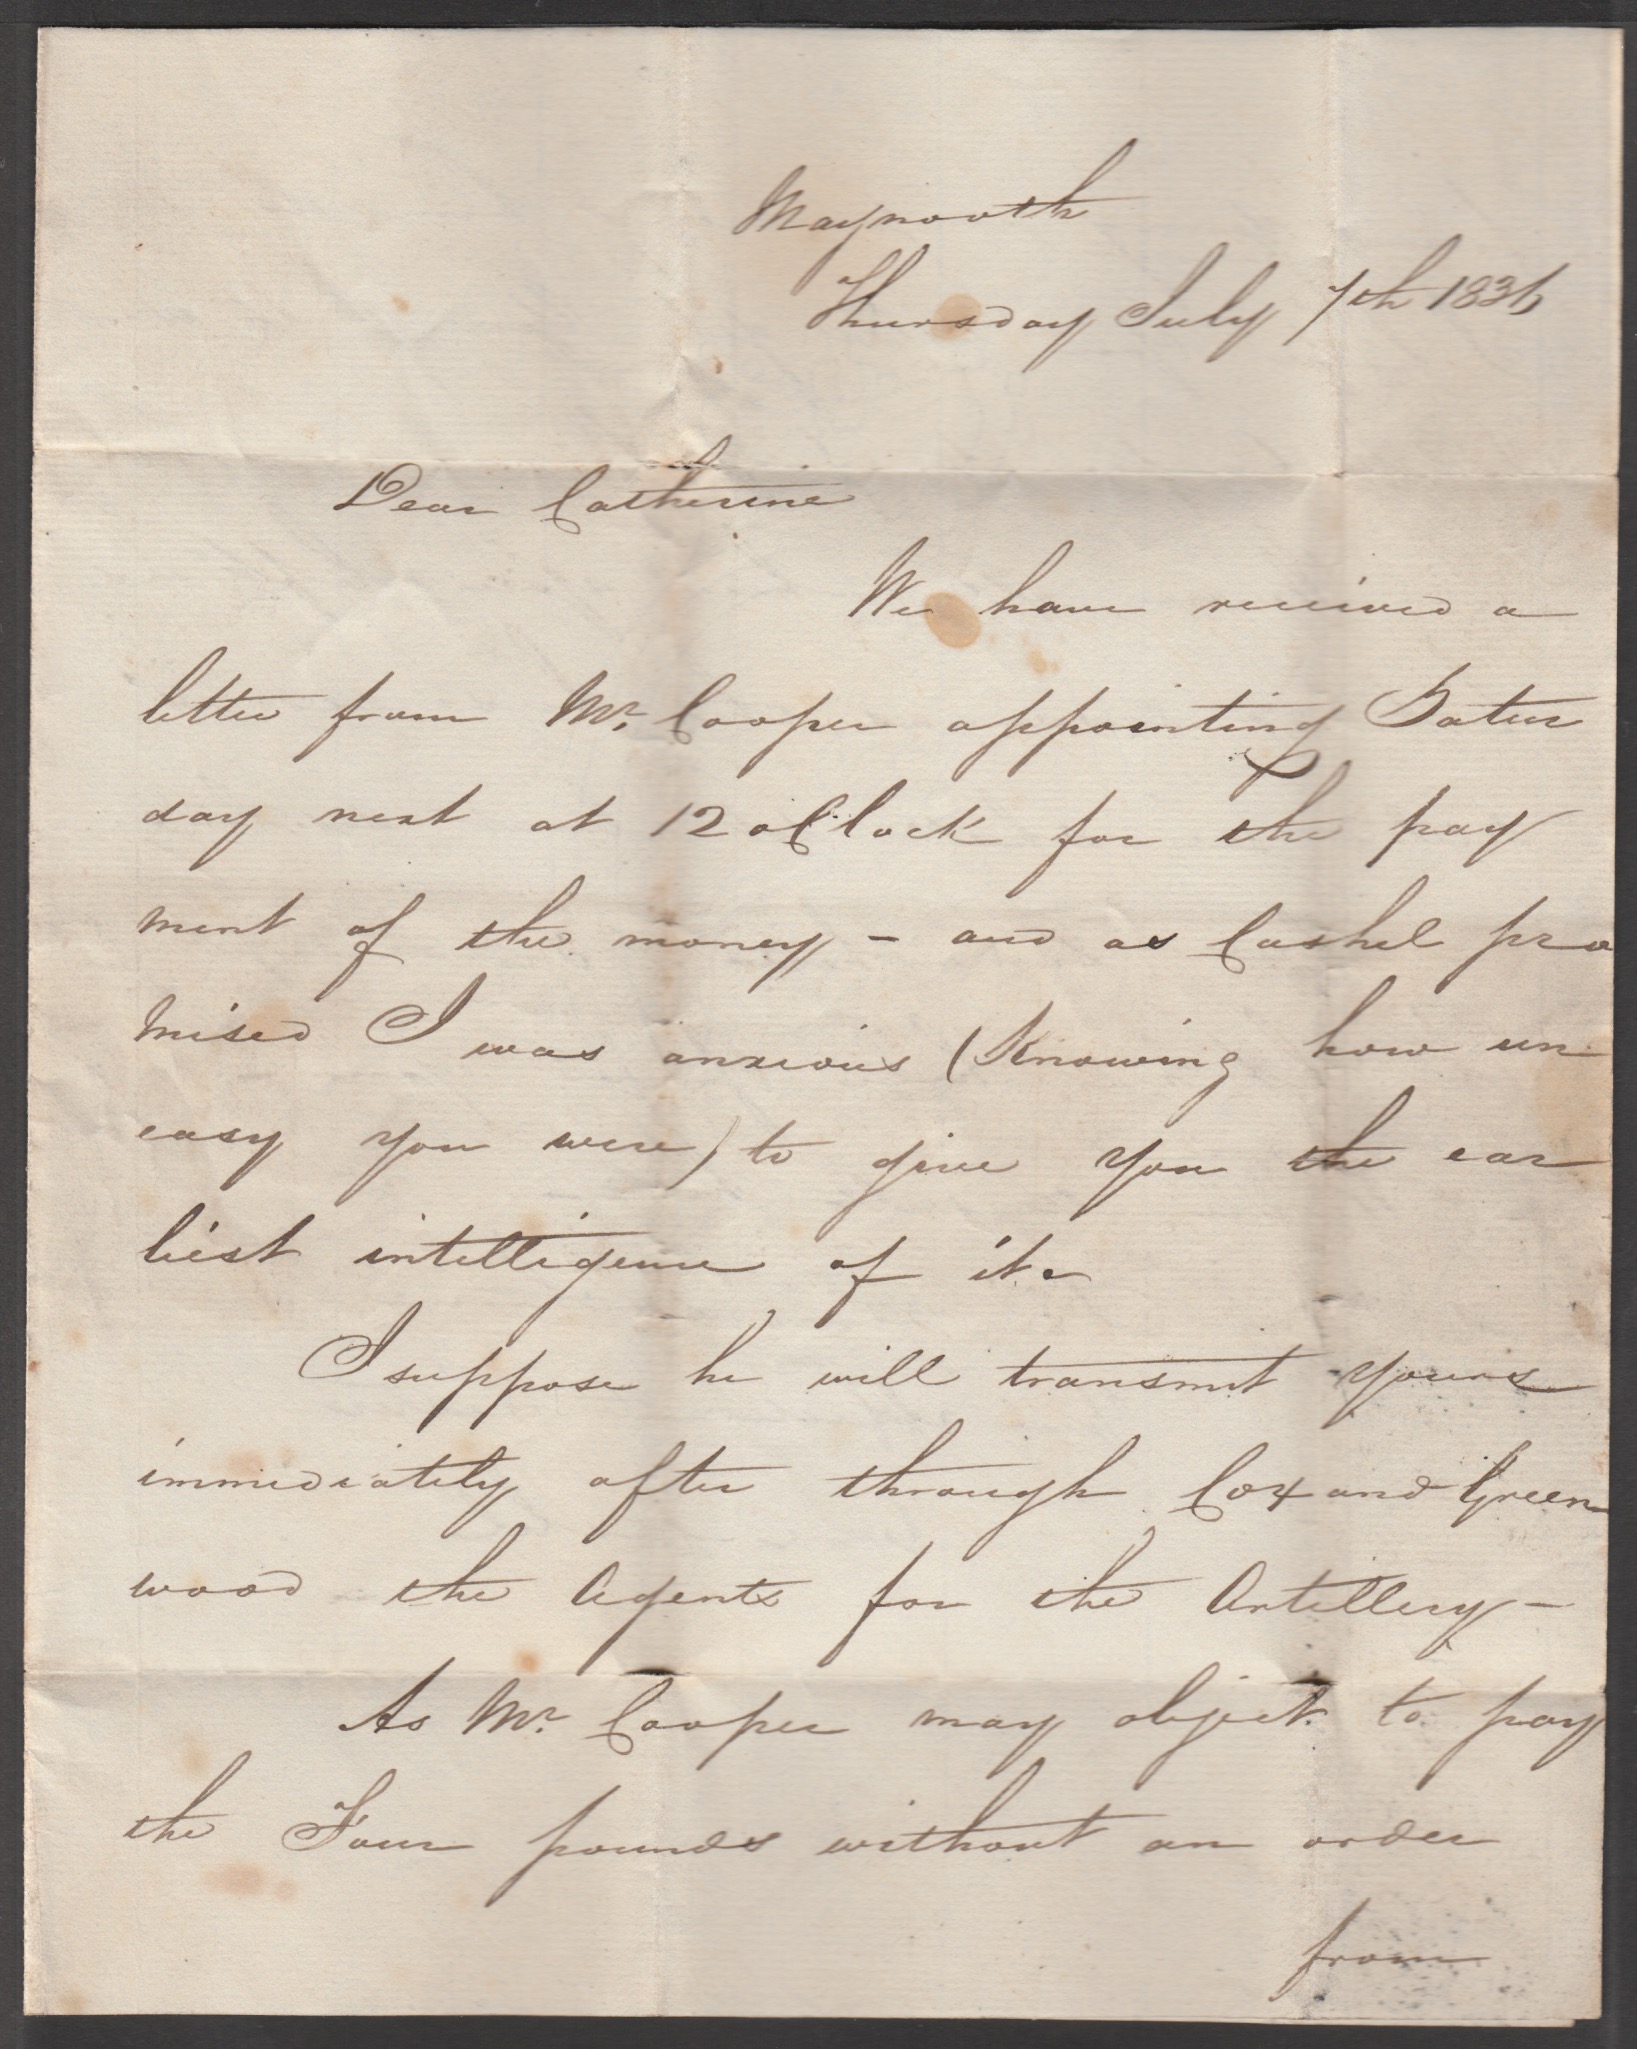 Maynooth
Thursday July 7th 1836
Dear Catherine
We have received a
letter from Mr. Cooper appointing Satur
day next at 12 oClock for the pay
ment of the money - and as Cashel pro
mised I was anxious (Knowing how un
easy you were) to give you the ear
liest intelligence of it.
I suppose he will transmit yours
immediately after through Cox and Green
wood the Agents for the Artillery -
As Mr. Cooper may object to pay
the Four pounds without an order
from